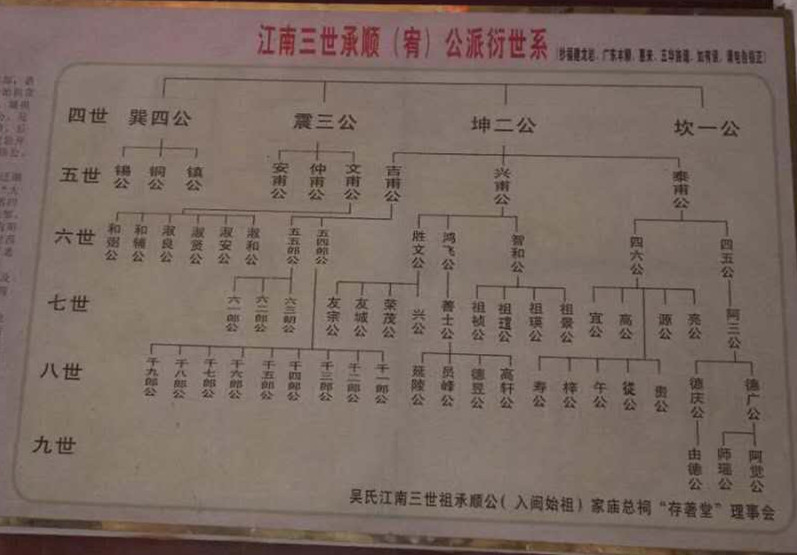 江南三世承顺（宥）公派衍世系（抄福建龙岩、广东丰顺、惠来、五华族谱，如有误，请包自指正）
四世 巽四公 震三公 坤二公 坎一公
五世 锡公 铜公 镇公 安甫公 仲甫公 文甫公 吉甫公 兴甫公 泰甫公
六世 和弼公 和辅公 淑良公 淑贤公 淑安公 淑和公 五五郎公 五四郎公 胜文公 鸿飞公 智和公 四六公 四五公
七世 六一郎公 六二郎公 六三郎公 友宗公 友城公 荣茂公 兴公 善士公 祖祯公 祖瑄公 祖瑛公 祖景公 宜公 高公 源公 亮公 阿三公
八世 千九郎公 千八郎公 千七郎公 千六郎公 千五郎公 千四郎公 千三郎公 千二郎公 千一郎公 延陵公 员峰公 德昱公 高轩公 寿公 梓公 午公 從公 贵公 德庆公 德广公
九世 由德公 师瑶公 阿觉公
吴氏江南三世祖承顺公（入闽始祖）家庙总祠“存著堂”理事会